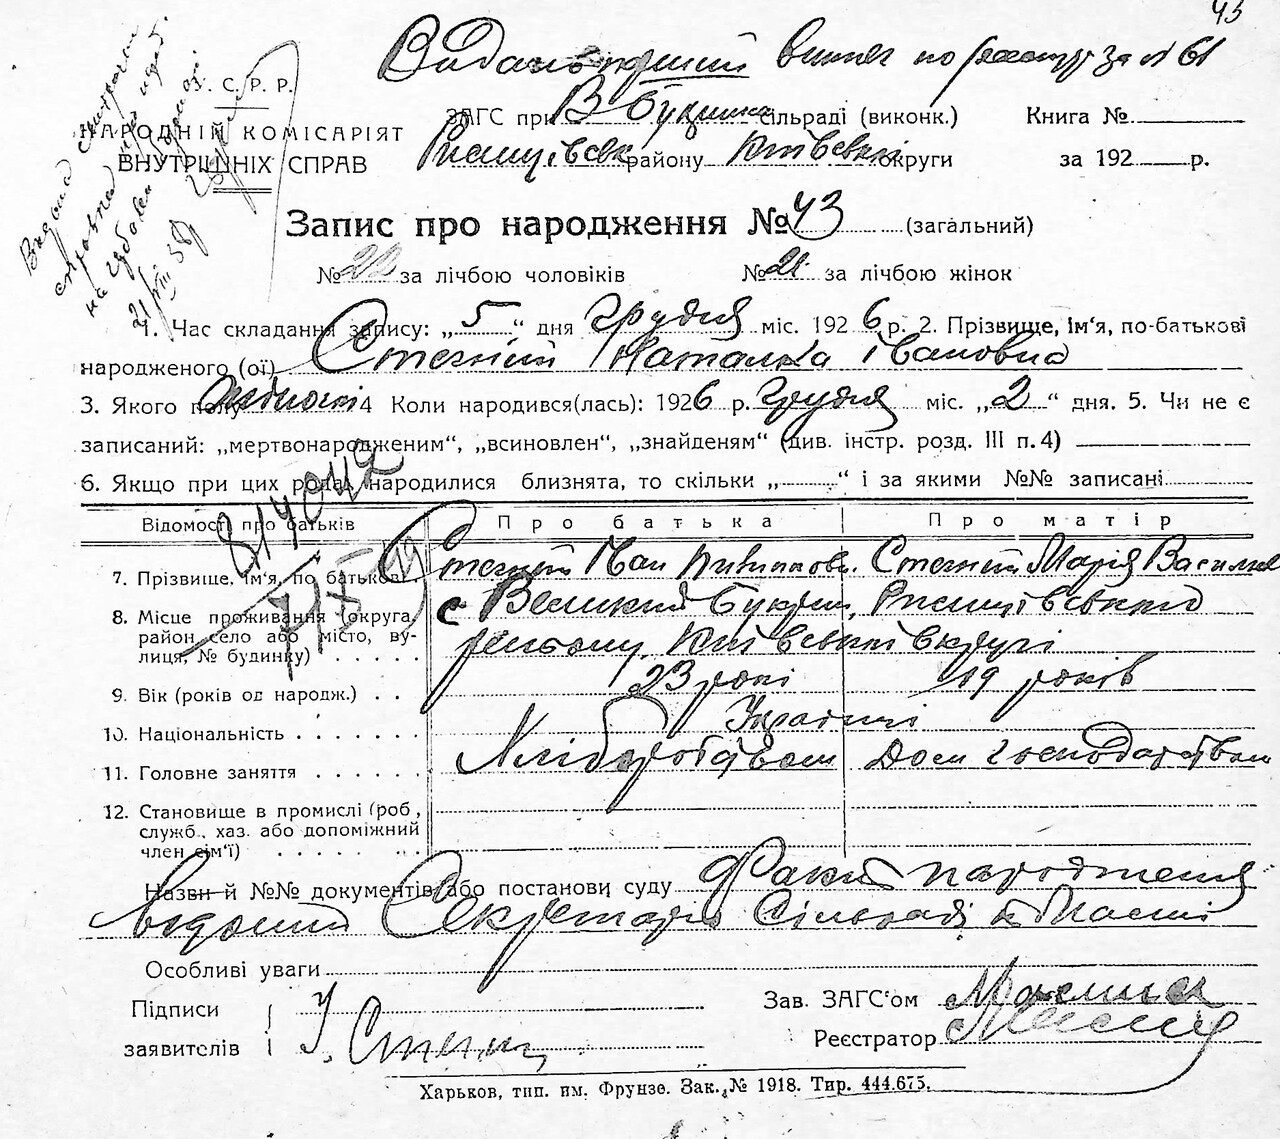 43
Видано перший витяг по реєстру за № 61
У. С. Р. Р.
НАРОДНІЙ КОМІСАРІЯТ
ВНУТРІШНІХ СПРАВ
Видана
справка
на
21/VIII 38р
ЗАГС при В Букрин сільраді (виконк.) Книга №
Ржищівськ району Київської округи за 192 р.
Запис про народження № 43 (загальний)
№ 22 за лічбою чоловіків № 21 за лічбою жінок
1. Час складання запису: „5“ дня Грудня міс. 1926 р. 2. Прізвище, ім'я, по-батькові
народженого (ої) Стегній Наталка Івановна
3. Якого полу жіночої 4 Коли народився(лась): 1926 р. Грудня міс. „2“ дня. 5. Чи не є
записаний: „мертвонародженим“, „всиновлен“, „знайденям“ (див. інстр. розд. III п. 4)
6. Якщо при цих родах народилися близнята, то скільки „ “ і за якими №№ записані
Відомості про батьків Про батька Про матір
7. Прізвище, ім'я, по батькові Стегній Іван Стегній Марія Василів
8. Місце проживання (округа, с Великий Букрин, Ржищівського
район село або місто, ву-
лиця, № будинку) району, Київської округи
9. Вік (років од народж.) 23 рокі 19 років
10. Національність Українці
11. Головне заняття Хліборобством Дом господарством
12. Становище в промислі (роб,
служб., хаз. або допоміжний
член сім'ї)
Назви й №№ документів або постанови суду Факт народження
відомий Секретарю Сільраді
Особливі уваги
Підписи
заявителів І. Стегн
Зав. ЗАГС'ом
Реєстратор
Харьков, тип. им. Фрунзе. Зак. № 1918. Тир. 444.675.